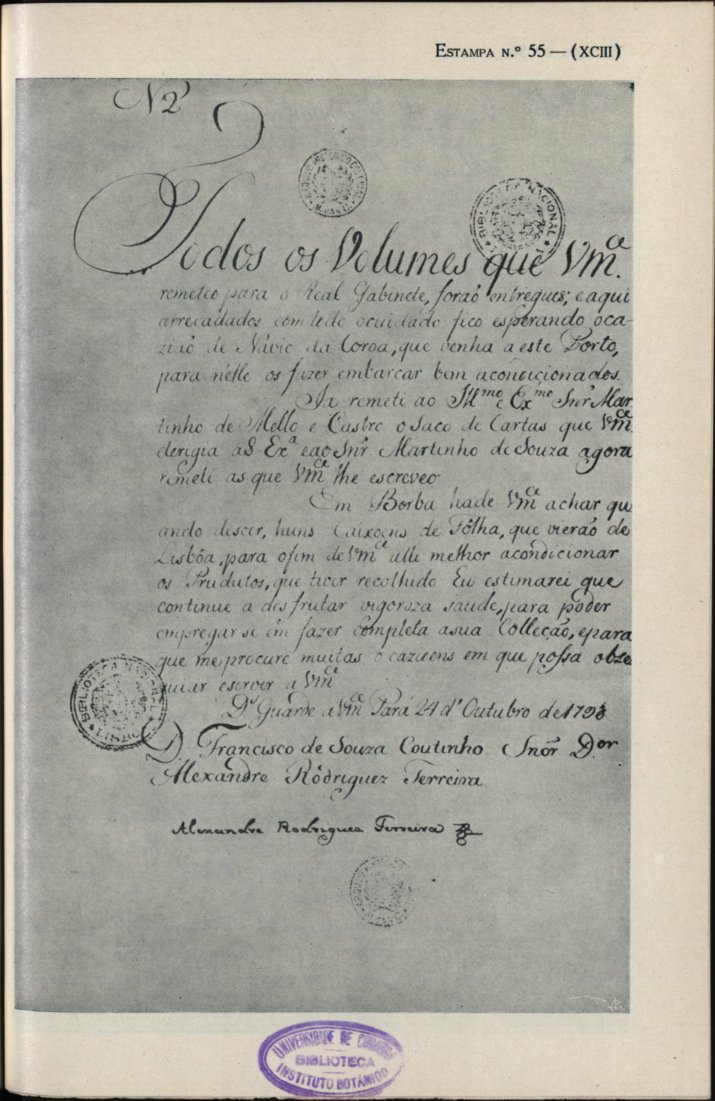 ESTAMPA N.º 55 — (XCIII)
N 2
Todos os Volumes que Vm.ce
remeteo para o Real Gabinete, foraõ entregues; e aqui
arrecadados com todo o cuidado fico esperando oca-
ziaõ de Navio da Coroa, que venha a este Porto,
para nelle os fazer embarcar bem acondicionados.
Ja remeti ao Ill.mo e Ex.mo Snr Mar
tinho de Mello e Castro o Saco de Cartas que Vm.ce
derigia a S Ex.a e ao Snr Martinho de Souza agora
remeti as que Vm.ce lhe escreveo
Em Borba hade Vm.ce achar qu
ando descer, huns Caixoens de Fôlha, que vieraõ de
Lisbôa, para o fim de Vm.ce alli melhor acondicionar
os Produtos, que tiver recolhido Eu estimarei que
continue a desfrutar vigoroza saude, para poder
empregar se em fazer completa a sua Collecçaõ, e para
que me procure muitas ocazioens em que possa obze
quiar e servir a Vm.ce
D.s Guarde a Vm.ce Pará 24 d' Outubro de
D. Francisco de Souza Coutinho Snõr D.or
Alexandre Rodriguez Ferreira
Alexandre Rodrigues Ferreira
BIBLIOTECA NACIONAL
BIBLIOTECA NACIONAL
LISBOA
UNIVERSIDADE DE COIMBRA
BIBLIOTECA
INSTITUTO BOTÂNICO